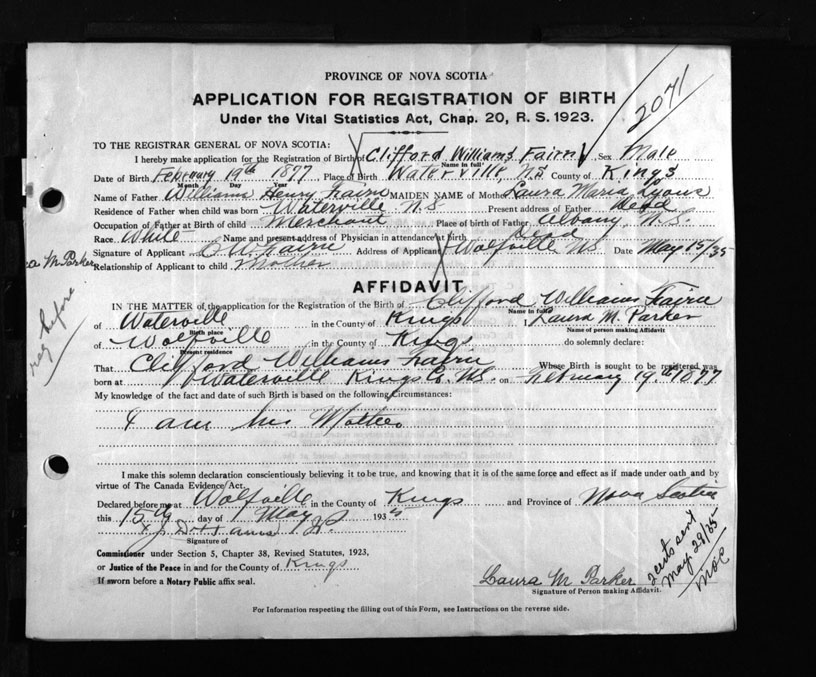 PROVINCE OF NOVA SCOTIA
2071
APPLICATION FOR REGISTRATION OF BIRTH
Under the Vital Statistics Act, Chap. 20, R. S. 1923.
TO THE REGISTRAR GENERAL OF NOVA SCOTIA:
I hereby make application for the Registration of Birth of Clifford Williams Fairn Sex Male
Name in full
Date of Birth February 19th 1877 Place of Birth Waterville, N.S County of Kings
Month Day Year
Name of Father William Henry Fairn MAIDEN NAME of Mother Laura Maria Lyons
Residence of Father when child was born Waterville N.S Present address of Father Dead
Occupation of Father at Birth of child Merchant Place of birth of Father Albany, N.S.
Race White Name and present address of Physician in attendance at birth Dead
Signature of Applicant C W Fairn Address of Applicant Wolfville NS Date May 15/35
a M Parker
Relationship of Applicant to child Mother
reg before
AFFIDAVIT
IN THE MATTER of the application for the Registration of the Birth of Clifford Williams Fairn
Name in full
of Waterville in the County of Kings I, Laura M. Parker
Birth place Name of person making Affidavit
of Wolfville in the County of Kings do solemnly declare:
Present residence
That Clifford Williams Fairn Whose Birth is sought to be registered was
born at Waterville Kings Co. NS. on February 19th 1877
My knowledge of the fact and date of such Birth is based on the following Circumstances:
I am his Mother
I make this solemn declaration conscientiously believing it to be true, and knowing that it is of the same force and effect as if made under oath and by
virtue of The Canada Evidence Act.
Declared before me at Wolfville in the County of Kings and Province of Nova Scotia
this 15th day of May 193
Signature of
Commissioner under Section 5, Chapter 38, Revised Statutes, 1923,
or Justice of the Peace in and for the County of Kings
If sworn before a Notary Public affix seal.
Laura M Parker
Signature of Person making Affidavit.
2 certs sent
May 29/35
For Information respecting the filling out of this Form, see Instructions on the reverse side.